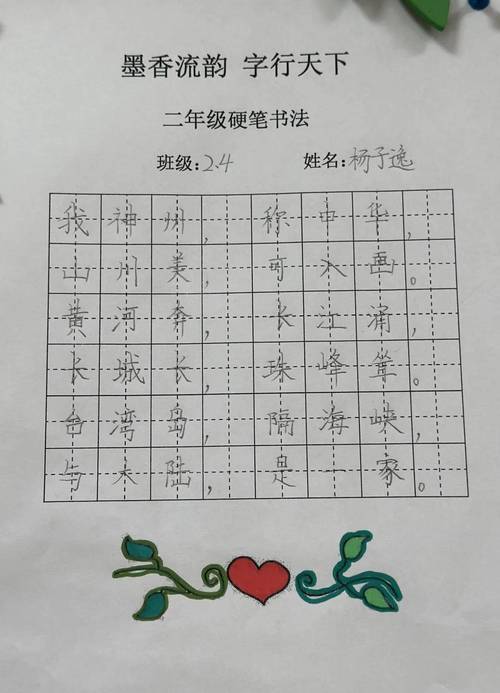 墨香流韵 字行天下
二年级硬笔书法
班级:2.4 姓名:杨子逸
我神州,称中华,
山川美,可入画。
黄河奔,长江涌,
长城长,珠峰耸。
台湾岛,隔海峡,
与大陆,是一家。